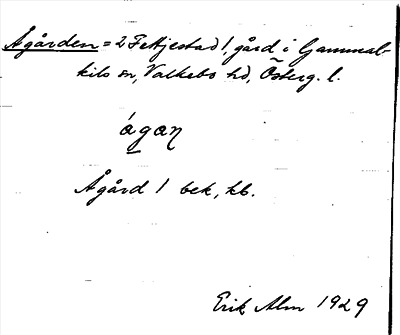 Ågården = 2 Fettjestad 1, gård i Gammal-
kils sn, Valkebo hd, Österg. l.
ágaɳ
Ågård 1 bek, kb.
Erik Alm 1929